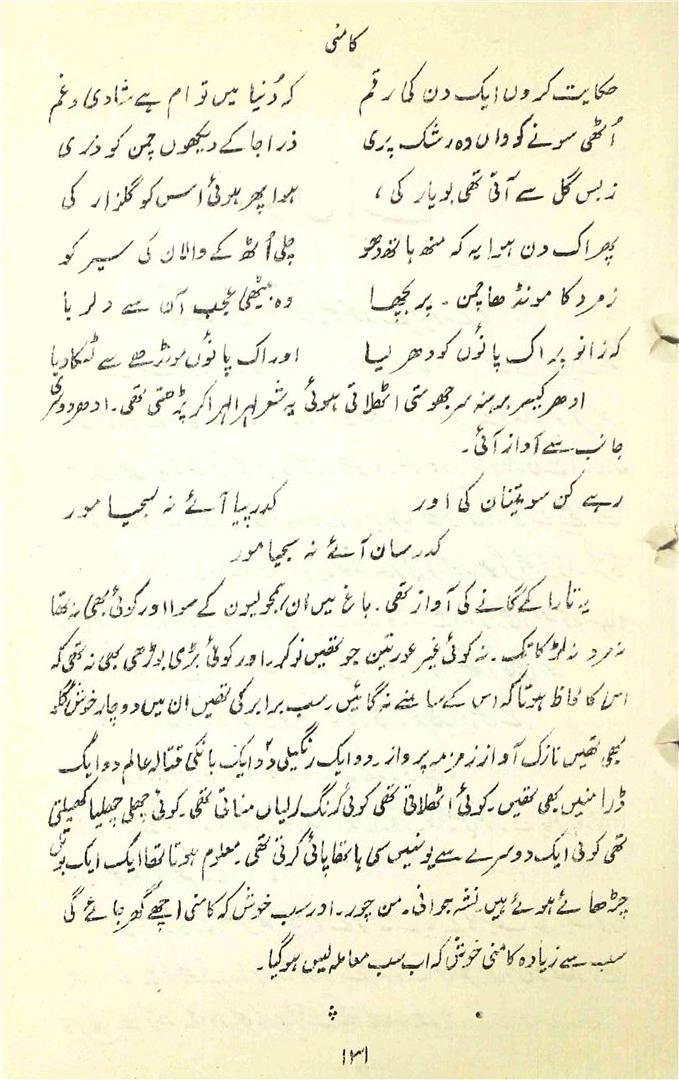 کامنی
حکایت کروں ایک دن کی رقم کہ دُنیا میں توام ہے شادی و غم
اُٹھی سونے کو واں وہ رشک پری ذرا جا کے دیکھوں چمن کو ذری
زبس گل سے آتی تھی بو یار کی، ہوا پھر ہوئی اس کو گلزار کی
پھر اک دن ہوا یہ کہ منھ ہاتھ دھو چلی اُٹھ کے والان کی سیر کو
زمرد کا مونڈھا چمن ۔ پر بچھا وہ بیٹھی عجب آن سے دلربا
کہ زانو پہ اک پانوں کو دھر لیا اور اک پانوں مونڈھے سے لٹکا دیا
ادھر کیسر برہنہ سر جھومتی اٹھلاتی ہوئی یہ شعر لہرا لہرا کر پڑھتی تھی۔ ادھر دوسری
جانب سے آواز آئی۔
رہے کن سویتنان کی اور کدر پیا آئے نہ سجیا مور
کدر سان آئے نہ سجیا مور
یہ تارا کے گانے کی آواز تھی۔ باغ میں ان ہمجولیون کے سوا اور کوئی بھی نہ تھا
نہ مرد نہ لڑکا تک۔ نہ کوئی غیر عورتین جو تھیں نوکر۔ اور کوئی بڑی بوڑھی بھی نہ تھی کہ
اس کا لحاظ ہوتا کہ اس کے سامنے نہ گائیں۔ سب برابر کی تھیں ان میں دو چار خوش گلو
بھی تھیں نازک آواز زمزمہ پرواز۔ دو ایک رنگیلی دو ایک بانکی قتالہ عالم دو ایک
ڈرامنیں بھی تھیں۔ کوئی اٹھلاتی تھی کوئی رنگ رلیاں مناتی تھی۔ کوئی چھلی چھلیا کھیلتی
تھی کوئی ایک دوسرے سے یونہیں سی ہاتھا پائی کرتی تھی۔ معلوم ہوتا تھا ایک ایک بوتل
چڑھائے ہوئے ہیں نشہ جوانی۔ من چور۔ اور سب خوش کہ کامنی اچھے گھر جائے گی
سب سے زیادہ کامنی خوش کہ اب سب معاملہ لیس ہو گیا۔
۱۳۱